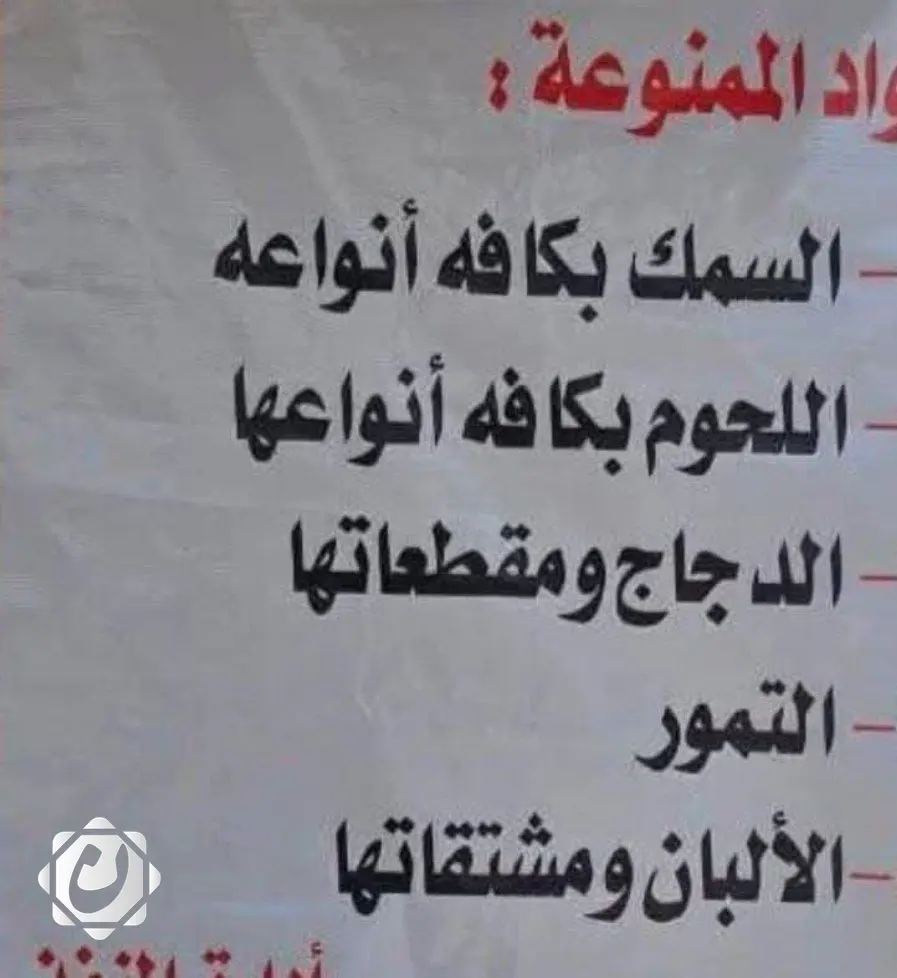 واد الممنوعة :
- السمك بكافه أنواعه
- اللحوم بكافه أنواعها
- الدجاج ومقطعاتها
- التمور
- الألبان ومشتقاتها